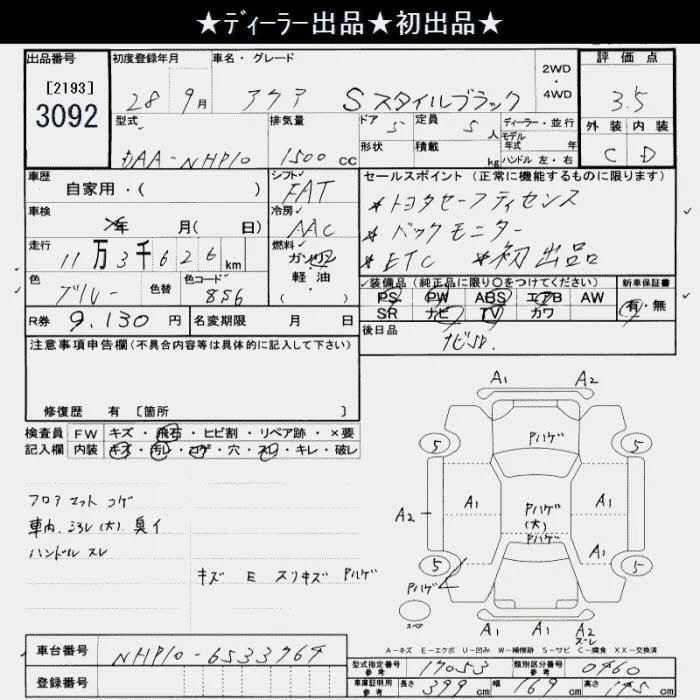 ★ディーラー出品★初出品★
出品番号 [2193] 3092
初度登録年月 28 9月
車名・グレード アクア Sスタイルブラック
2WD・4WD
評価点 3.5
型式 DAA-NHP10
排気量 1500cc
ドア 5 定員 5人
形状 積載 kg
ディーラー・並行
モデル年式 年
ハンドル 左・右
外装 C 内装 D
車歴 自家用・( )
シフト FAT
セールスポイント (正常に機能するものに限ります)
*トヨタセーフティセンス
*バックモニター
*ETC *初出品
車検 年 月( 日)
冷房 AAC
走行 11万3千626km
燃料 ガソリン 軽油
色 ブルー 色替 色コード 856
✓装備品(純正品に限り○をつけてください)
新車保証書
PS PW ABS エアB AW
SR ナビ TV カワ
有・無
R券 9,130円 名変期限 月 日
後日品 ナビSD.
注意事項申告欄(不具合内容等は具体的に記入して下さい)
修復歴 有 [箇所 ]
検査員記入欄
FW キズ・飛石・ヒビ割・リペア跡・×要
内装 キズ・汚レ・コゲ・穴・スレ・キレ・破レ
フロアマットコゲ
車内ヨゴレ(大)臭イ
ハンドルスレ
キズ E スリキズ Pハゲ
A1 A2
Pハゲ
5 5
A1 A1
A2
Pハゲ(大)
Pハゲ
A1 A1
5 5
Pハゲ
スペア
A1 A1 A2
ズーレ
A-キズ E-エクボ U-凹み W-補修跡 S-サビ C-腐食 XX-交換済
車台番号 NHP10-6533964
登録番号
型式指定番号 参考 17053
類別区分番号 参考 0460
車庫証明用 参考 長さ 399cm 幅 169cm 高さ 145cm